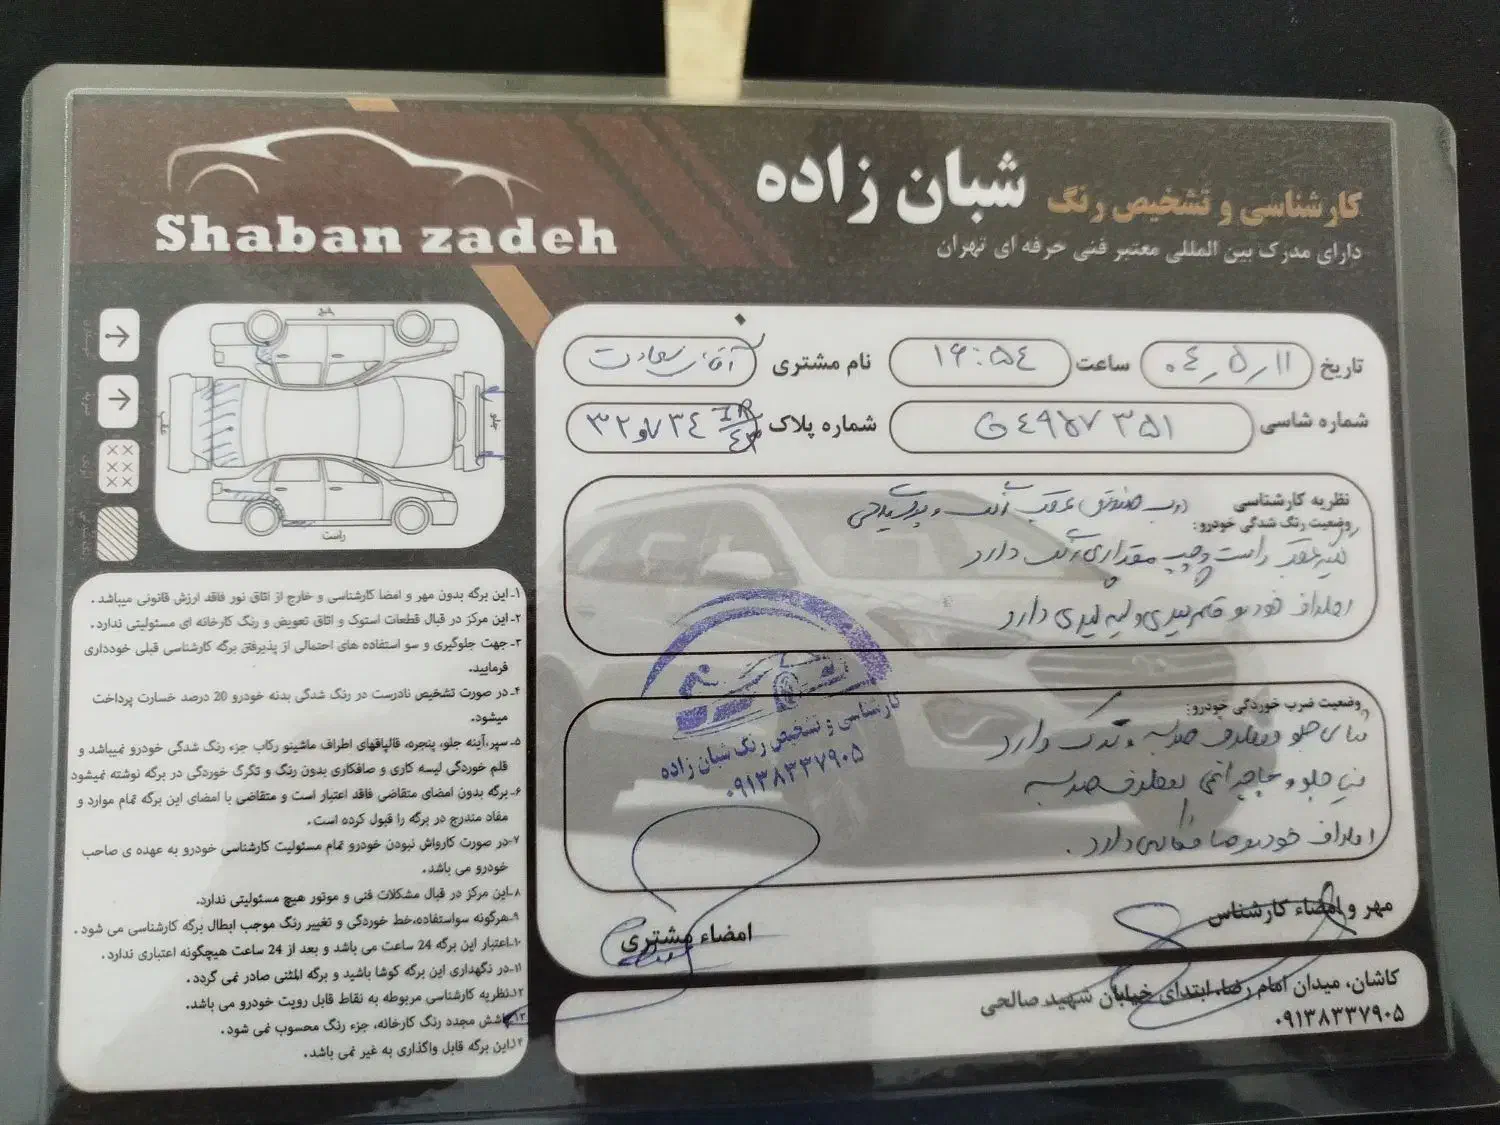 Shaban zadeh
کارشناسی و تشخیص رنگ شبان زاده
دارای مدرک بین المللی معتبر فنی حرفه ای تهران
تاریخ ۰۴٫۵٫۱۱ ساعت ۱۶:۵۴ نام مشتری آقای سعادت
شماره شاسی G۴۹۵۷۳۵۱ شماره پلاک
نظریه کارشناسی
وضعیت رنگ شدگی خودرو:
درب صندوق عقب رنگ و
گلگیر عقب راست و چپ مقداری رنگ دارد
اطراف خودرو قلم گیری و لیسه گیری دارد
وضعیت ضرب خوردگی خودرو:
اطراف خودرو صافکاری دارد.
کارشناسی و تشخیص رنگ شبان زاده
۰۹۱۳۸۳۳۷۹۰۵
مهر و امضاء کارشناس
امضاء مشتری
کاشان، میدان امام رضا، ابتدای خیابان شهید صالحی
۰۹۱۳۸۳۳۷۹۰۵
چپ
جلو
عقب
راست
۱-این برگه بدون مهر و امضا کارشناسی و خارج از اتاق نور فاقد ارزش قانونی میباشد.
۲-این مرکز در قبال قطعات استوک و اتاق تعویض و رنگ کارخانه ای مسئولیتی ندارد.
۳-جهت جلوگیری و سو استفاده های احتمالی از پذیرفتن برگه کارشناسی قبلی خودداری
فرمایید.
۴-در صورت تشخیص نادرست در رنگ شدگی بدنه خودرو 20 درصد خسارت پرداخت
میشود.
۵-سپر،آینه جلو، پنجره، قالپاقهای اطراف ماشینو رکاب جزء رنگ شدگی خودرو نمیباشد و
قلم خوردگی لیسه کاری و صافکاری بدون رنگ و تگرگ خوردگی در برگه نوشته نمیشود
۶-برگه بدون امضای متقاضی فاقد اعتبار است و متقاضی با امضای این برگه تمام موارد و
مفاد مندرج در برگه را قبول کرده است.
۷-در صورت کارواش نبودن خودرو تمام مسئولیت کارشناسی خودرو به عهده ی صاحب
خودرو می باشد.
۸-این مرکز در قبال مشکلات فنی و موتور هیچ مسئولیتی ندارد.
۹-هرگونه سواستفاده،خط خوردگی و تغییر رنگ موجب ابطال برگه کارشناسی می شود.
۱۰-اعتبار این برگه 24 ساعت می باشد و بعد از 24 ساعت هیچگونه اعتباری ندارد.
۱۱-در نگهداری این برگه کوشا باشید و برگه المثنی صادر نمی گردد.
۱۲-نظریه کارشناسی مربوطه به نقاط قابل رویت خودرو می باشد.
۱۳-پاشش مجدد رنگ کارخانه، جزء رنگ محسوب نمی شود.
۱۴-این برگه قابل واگذاری به غیر نمی باشد.